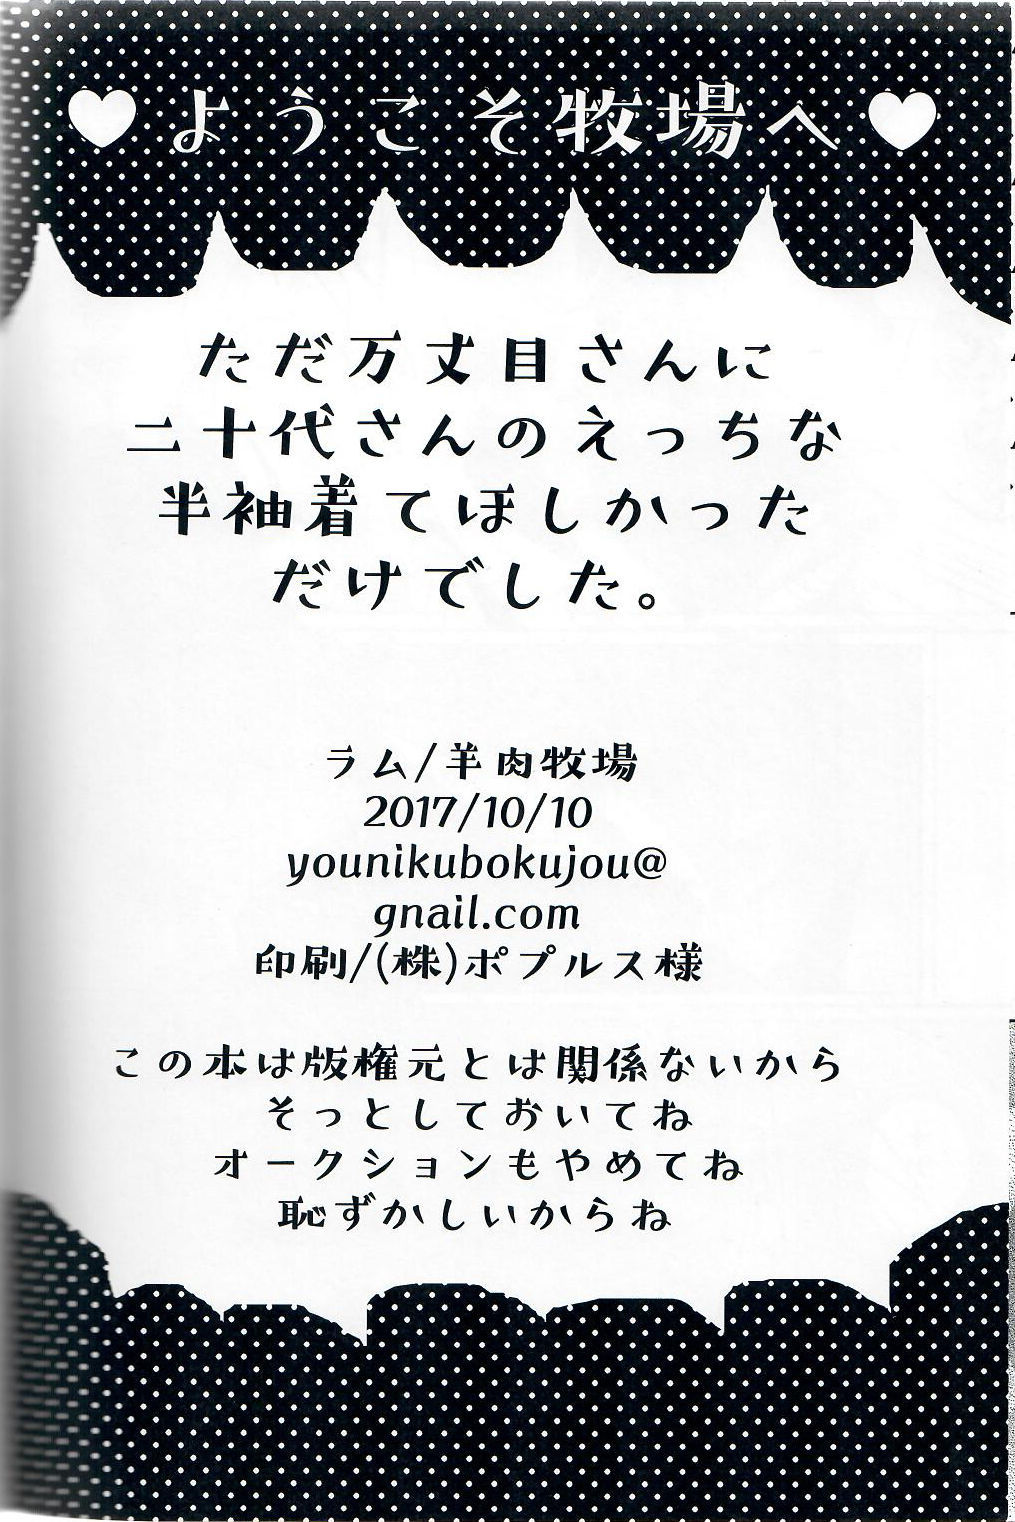 ♥ようこそ牧場へ♥
ただ万丈目さんに
二十代さんのえっちな
半袖着てほしかった
だけでした。
ラム/羊肉牧場
2017/10/10
younikubokujou@
gnail.com
印刷/(株)ポプルス様
この本は版権元とは関係ないから
そっとしておいてね
オークションもやめてね
恥ずかしいからね